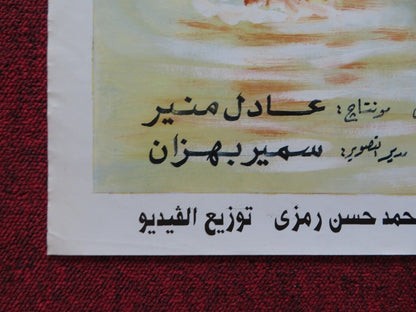 مونتاج: عادل منير
مدير التصوير: سمير بهزان
محمد حسن رمزى توزيع الڤيديو